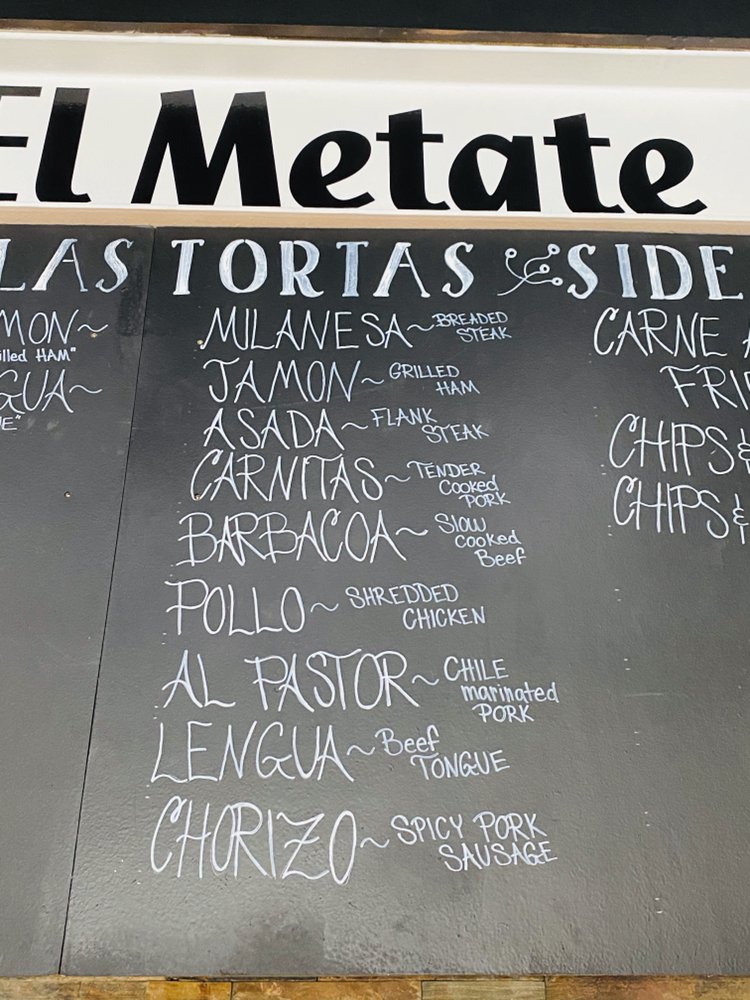 El Metate
LAS
MON~
illed HAM"
GUA~
TORTAS
MILANESA~BREADED
STEAK
JAMON~GRILLED
HAM
ASADA~FLANK
STEAK
CARNITAS~TENDER
Cooked
PORK
BARBACOA~Slow
Cooked
Beef
POLLO~SHREDDED
CHICKEN
AL PASTOR~CHILE
marinated
PORK
LENGUA~Beef
TONGUE
CHORIZO~SPICY PORK
SAUSAGE
SIDE
CARNE
FRI
CHIPS &
CHIPS &